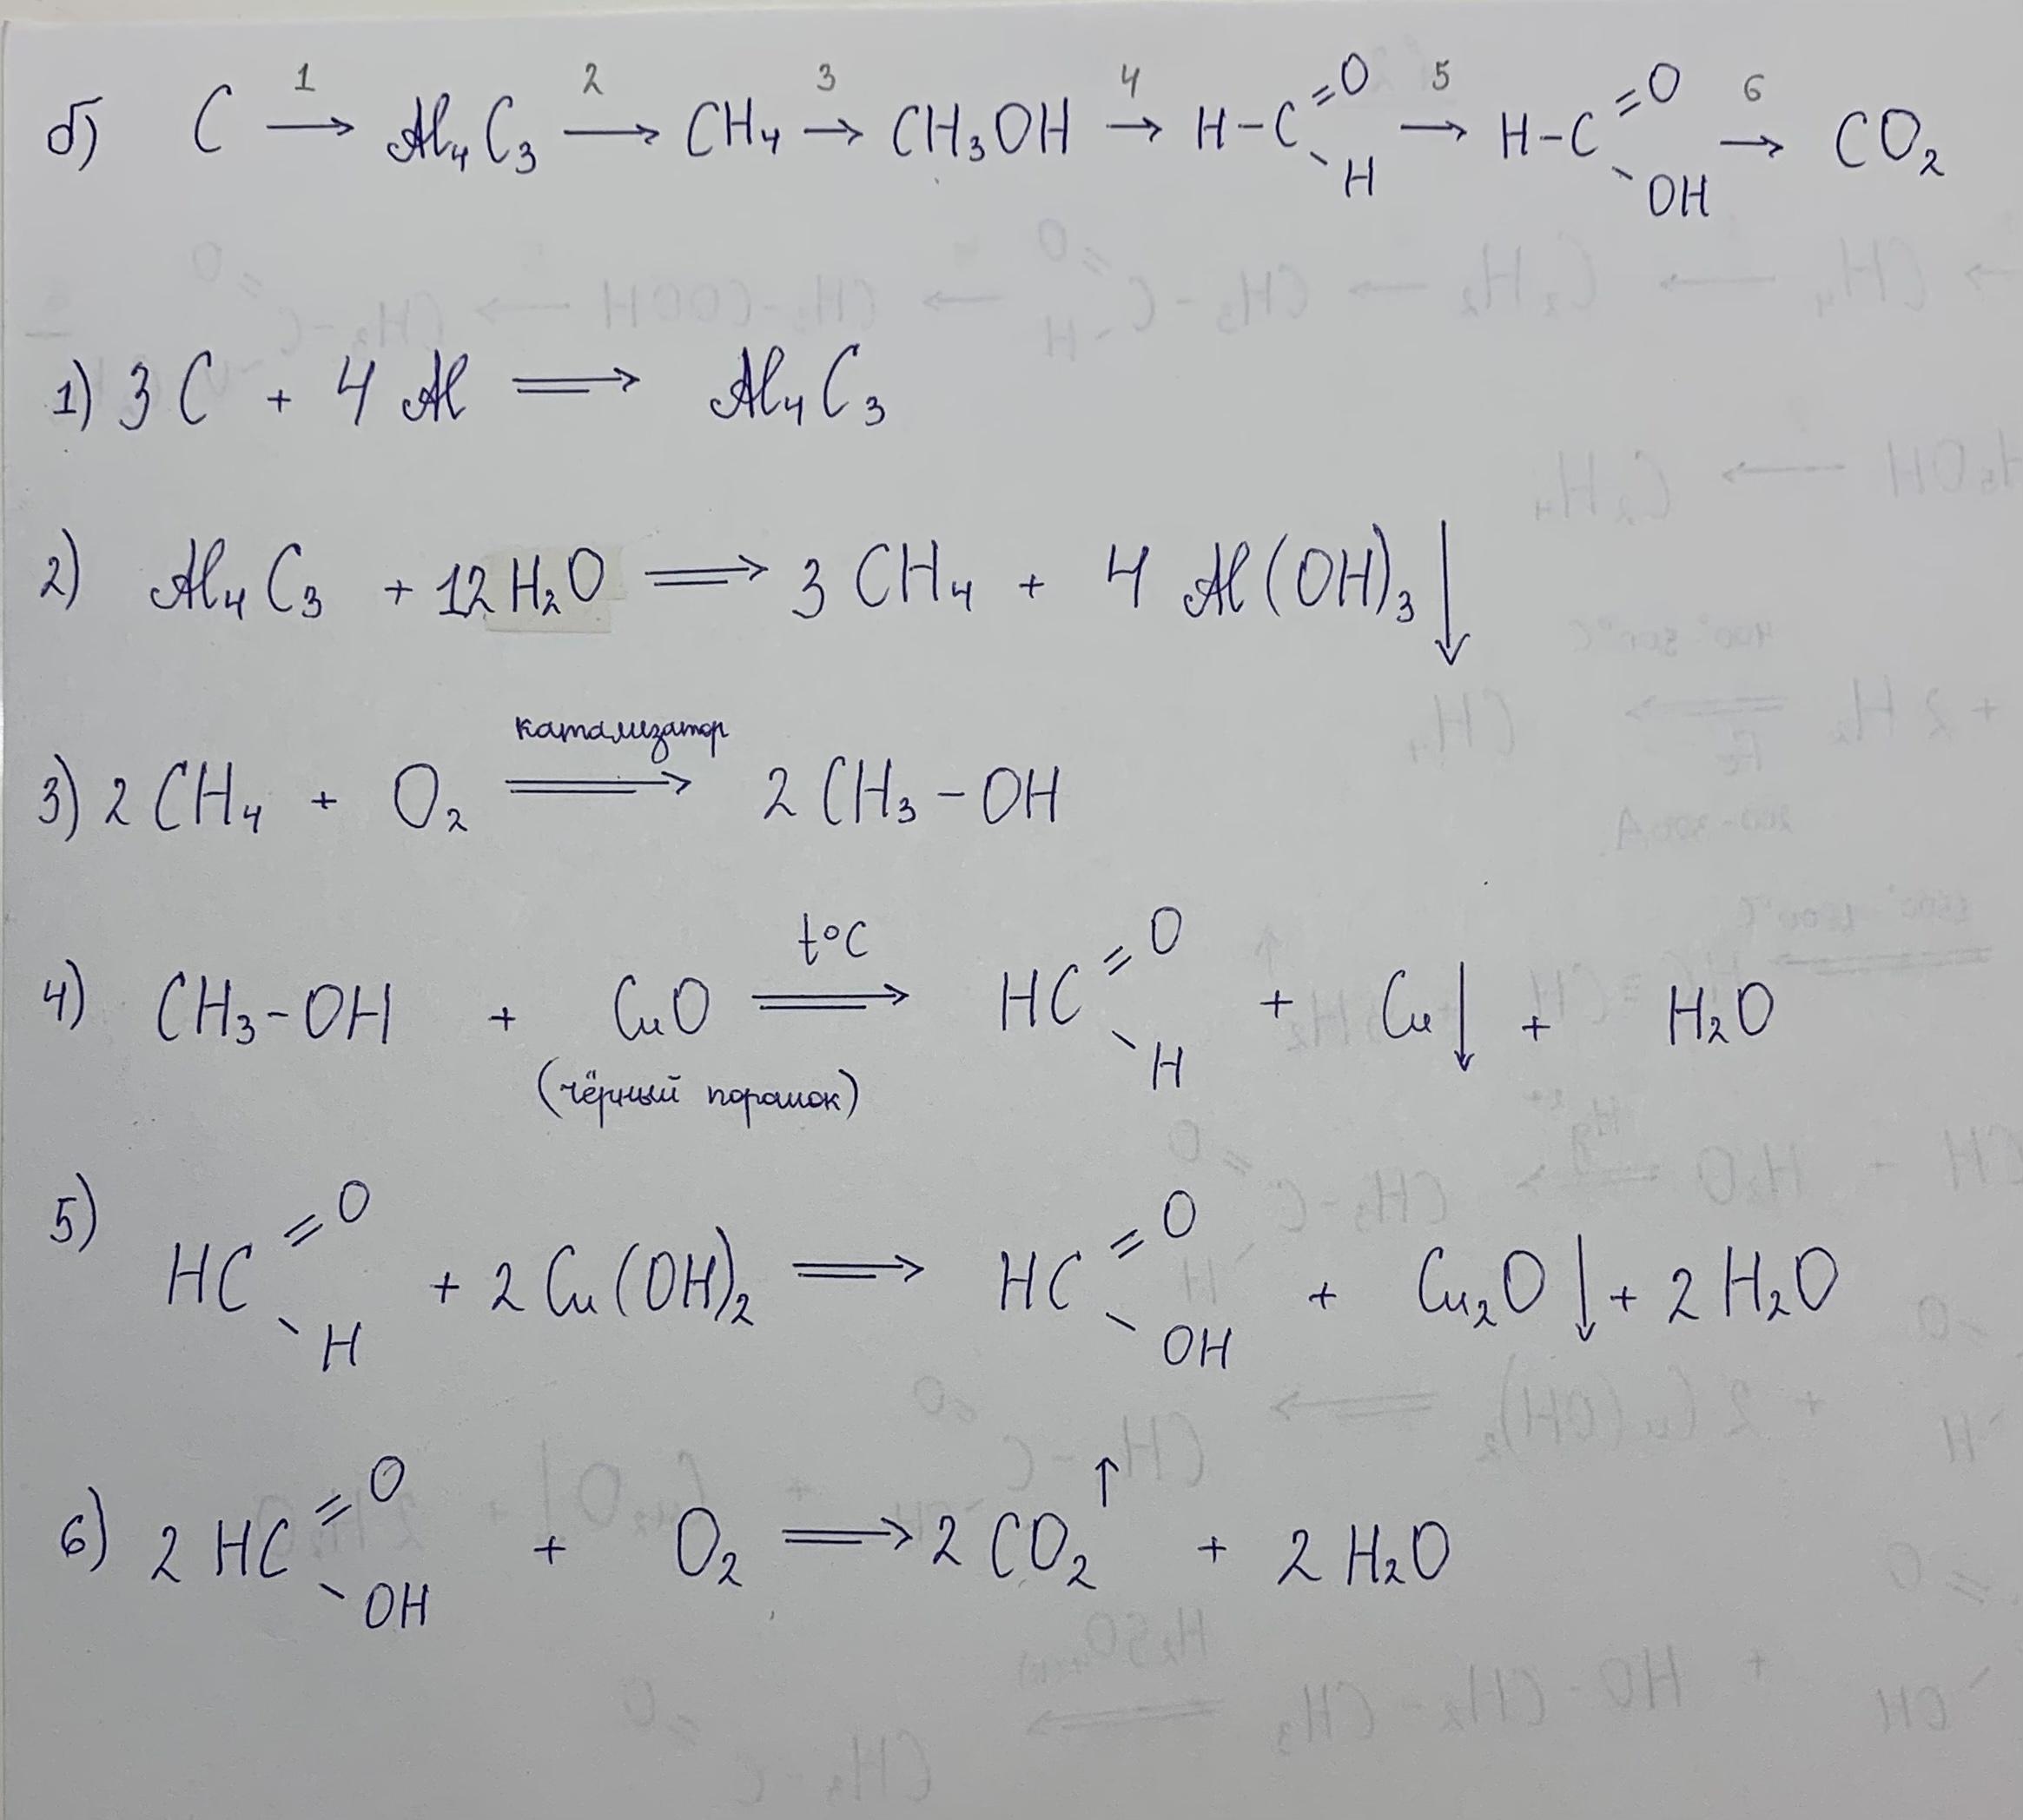 б) C 1→ Al₄C₃ 2→ CH₄ 3→ CH₃OH 4→ H-C=O-H 5→ H-C=O-OH 6→ CO₂
1) 3C + 4Al ⇒ Al₄C₃
2) Al₄C₃ + 12H₂O ⇒ 3CH₄ + 4Al(OH)₃↓
катализатор
3) 2CH₄ + O₂ ⇒ 2CH₃-OH
t°C
4) CH₃-OH + CuO ⇒ HC=O-H + Cu↓ + H₂O
(чёрный порошок)
5) HC=O-H + 2Cu(OH)₂ ⇒ HC=O-OH + Cu₂O↓ + 2H₂O
6) 2HC=O-OH + O₂ ⇒ 2CO₂↑ + 2H₂O